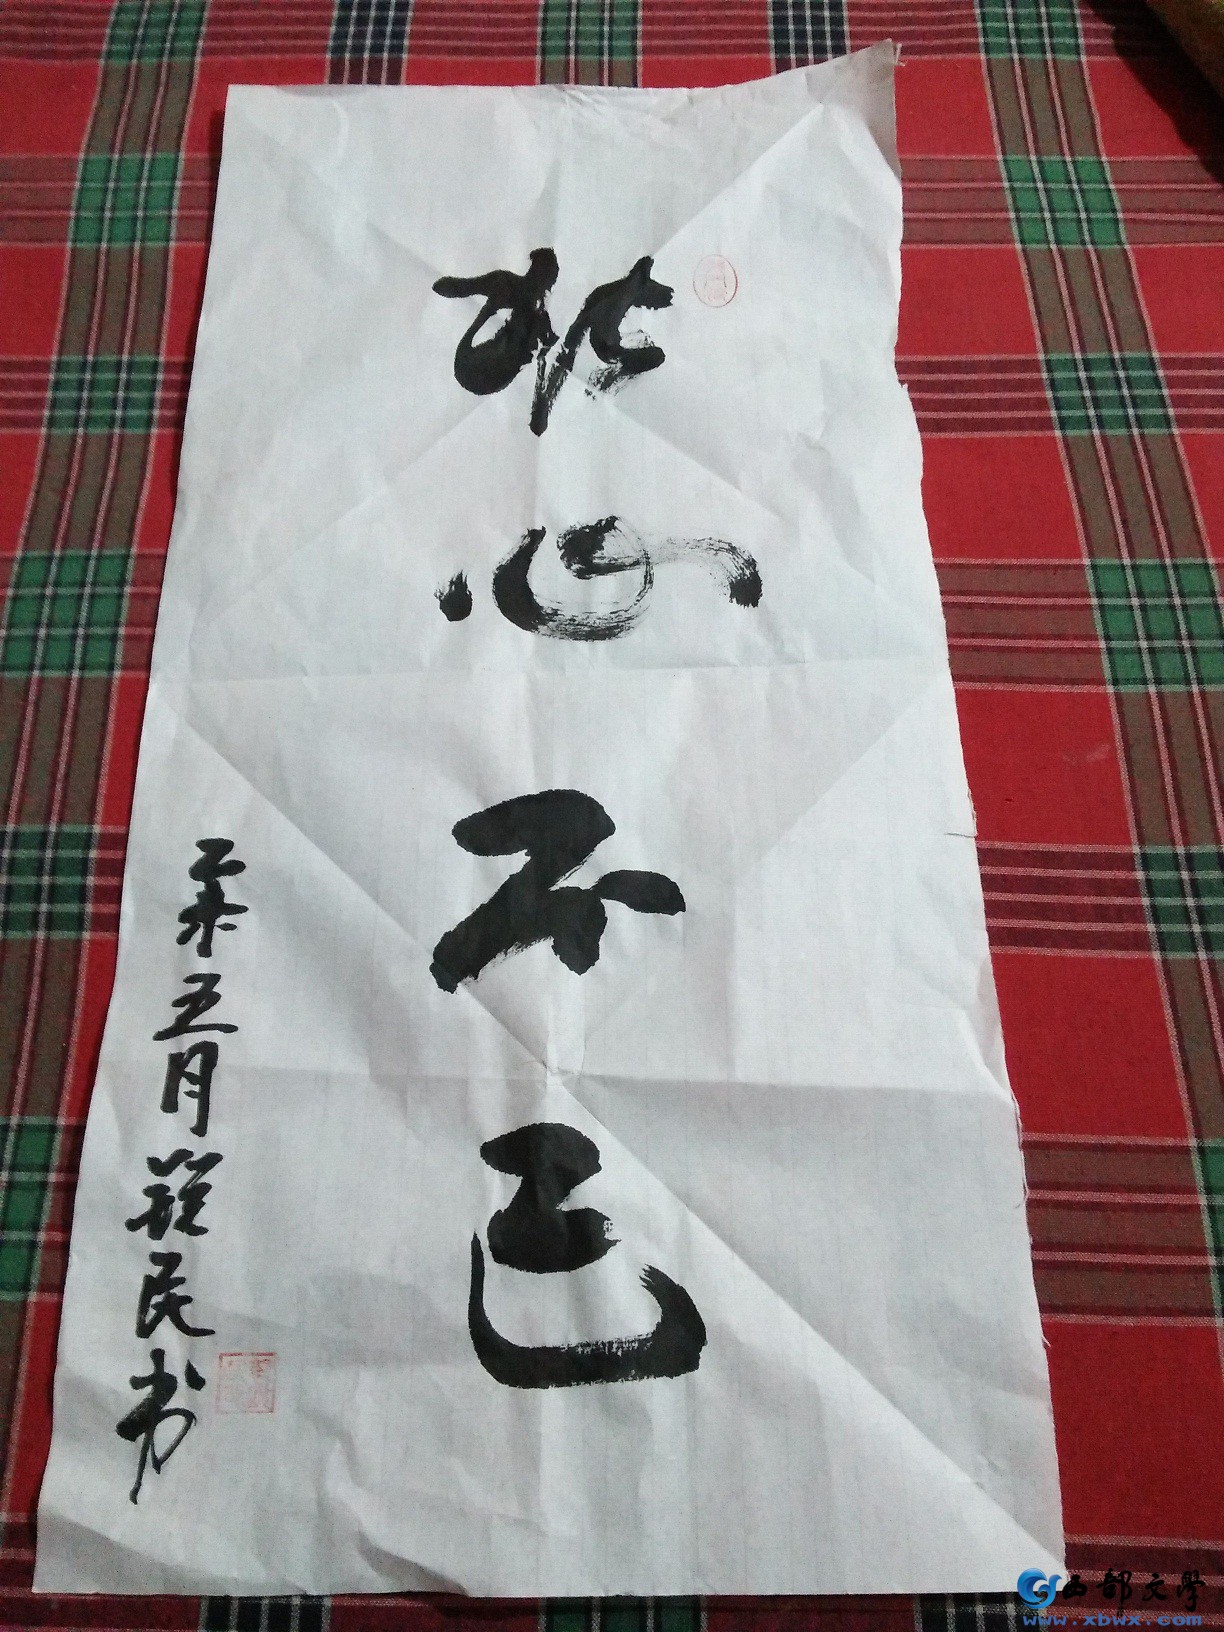 壮心不已
乙未五月民书
西部文學
www.xbwx.com